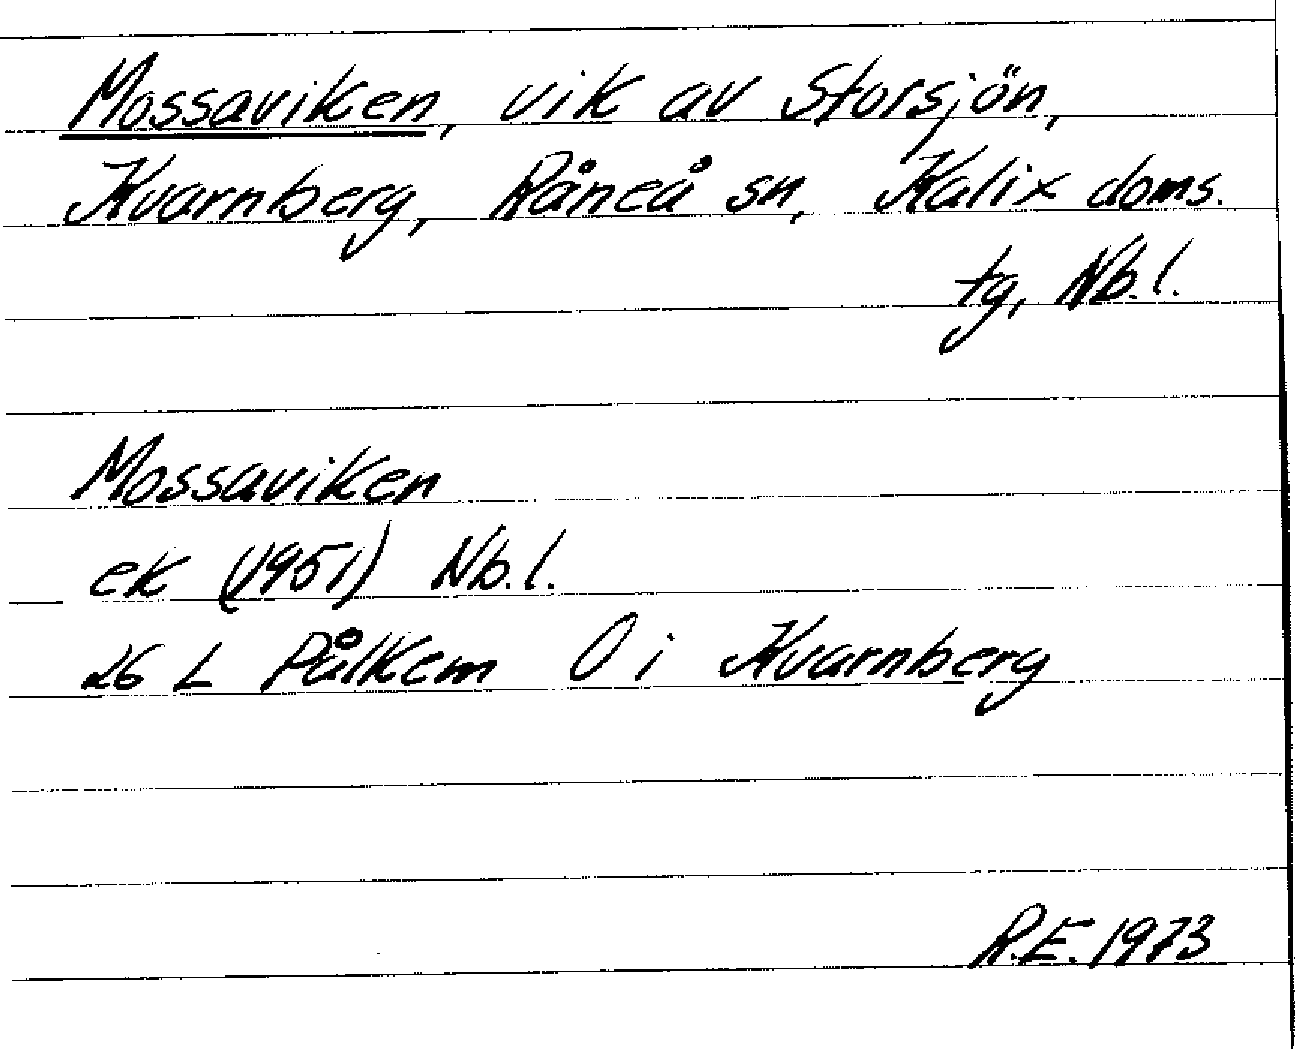 Mossaviken, vik av Storsjön,
Kvarnberg, Råneå sn, Kalix doms.
tg, Nb.l.
Mossaviken
ek (1951) Nb.l.
26 L Pålkem O i Kvarnberg
R.E. 1973